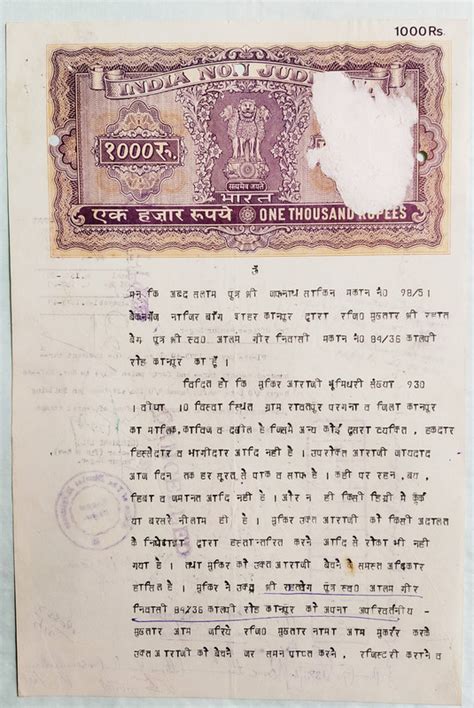 1000Rs.
INDIA NON JUDI
१000रु.
सत्यमेव जयते
भारत
एक हजार रूपये ONE THOUSAND RUPEES
मन कि अब्दुल सलाम पुत्र श्री साकिन मकान नं0 98/51
बेकनगंज नाजिर बाग शहर कानपुर द्वारा रजि0 मुख्तार श्री रहात
बेग पुत्र श्री स्व0 आलम गीर निवासी मकान नं0 84/36 कालपी
रोड कानपुर का हूँ ।
विदित हो कि मुकिर आराजी भूमिधरी संख्या 930
। बीघा 10 विस्वा स्थित ग्राम रावतपुर परगना व जिला कानपुर
का मालिक, काबिज व दखील है जिसमें अन्य कोई दूसरा व्यक्ति, हकदार
हिस्सेदार व भागीदार आदि नहीं है । उपरोक्त आराजी जायदाद
आज दिन तक हर तरह से पाक व साफ है । कहीं पर रहन, बय,
हिबा व जमानत आदि नहीं है । और न ही किसी डिग्री में कुर्क
या बरसरे नीलाम ही है । मुकिर उक्त आराजी को किसी अदालत
के निषेधाज्ञा द्वारा हस्तान्तरित करने आदि से रोका भी नहीं
गया है । तथा मुकिर को उक्त आराजी बेचने के समस्त अधिकार
हासिल है । मुकिर ने उक्त श्री राहतबेग पुत्र स्व0 आलम गीर
निवासी 84/36 कालपी रोड कानपुर को अपना अपरिवर्तनीय -
मुख्तार आम जरिये रजि0 मुख्तार नामा आम मुकर्रर करके
उक्त आराजी को बेचने जर समन प्राप्त करने , रजिस्ट्री कराने व